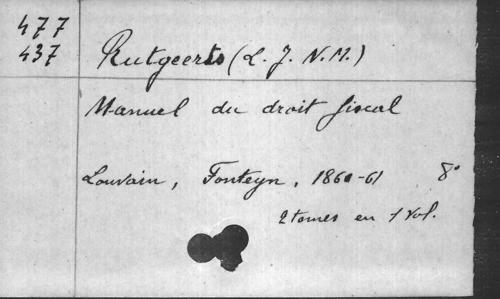 477
437
Rutgeerts (L. J. N. M.)
Manuel du droit fiscal
Louvain, Fonteyn, 1860-61 8°
2 tomes en 1 vol.